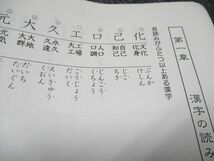 第一章 漢字の
音読みがふたつ以上ある漢字
化 文化 ぶんか
化身 けしん
己 自己 じこ
知己 ちき
口 人口 じんこう
口調 くちょう
工 工場 こうじょう
大工 だいく
久 永久 えいきゅう
久遠 くおん
大 大群 たいぐん
大地 だいち
元 元気